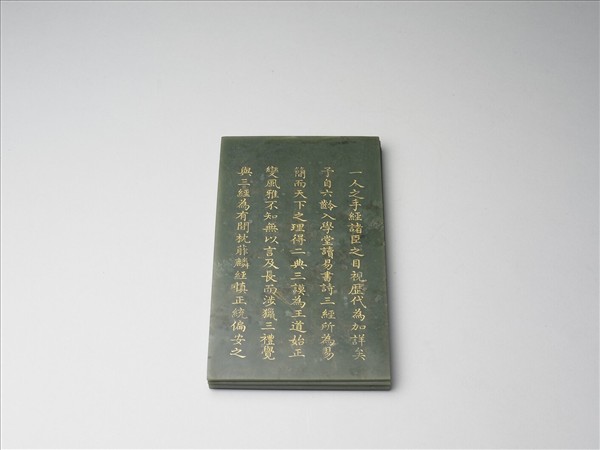 一人之手經諸臣之目視歷代為加詳矣
予自六齡入學堂讀易書詩三經所為易
簡而天下之理得二典三謨為王道始正
變風雅不知無以言及長而涉獵三禮覺
與三經為有間枕葄麟經慎正統偏安之